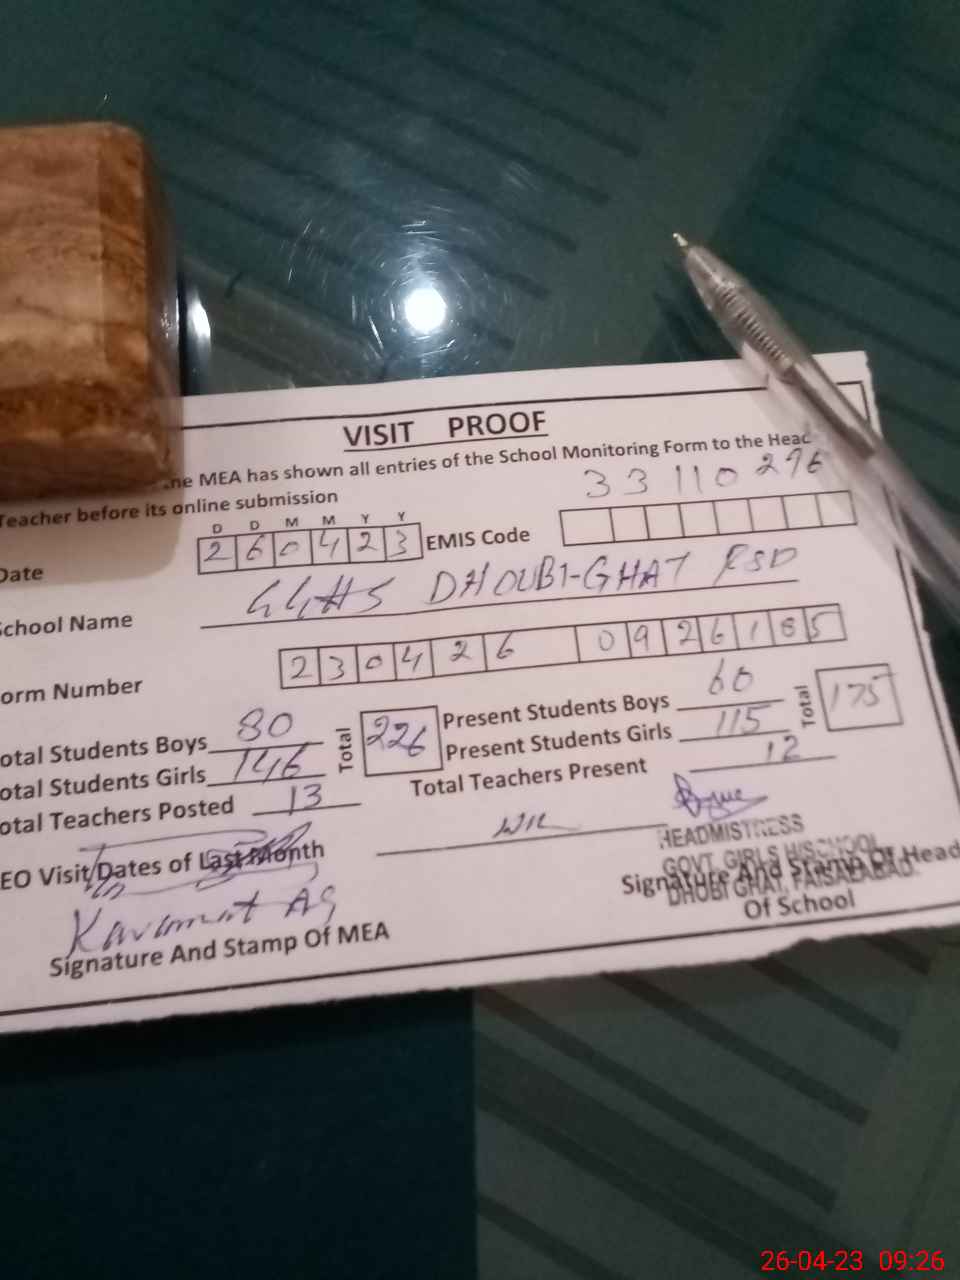 VISIT PROOF
the MEA has shown all entries of the School Monitoring Form to the Head
Teacher before its online submission
33110276
D D M M Y Y
Date 260423 EMIS Code
School Name GGHS DHOUBI-GHAT FSD
Form Number 230426 0926185
Total Students Boys 80 Total 226 Present Students Boys 60 Total 175
Total Students Girls 146 Present Students Girls 115
Total Teachers Posted 13 Total Teachers Present 12
EO Visit Dates of Last Month Nil
HEADMISTRESS
GOVT. GIRLS HI SCHOOL
DHUBI GHAT, FAISALABAD.
Signature And Stamp Of Head
Of School
Signature And Stamp Of MEA
26-04-23 09:26